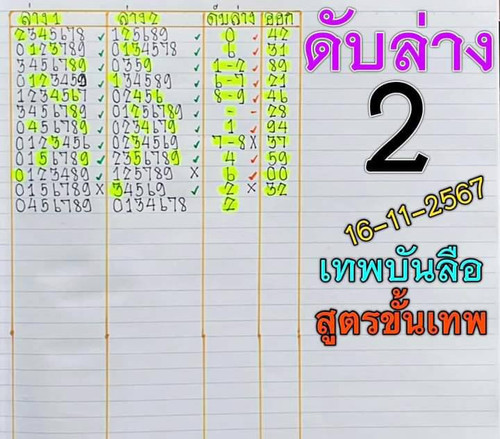 ล่าง 1 ล่าง 2 ดับล่าง ออก
2345678 ✓ 125689 ✓ 0 ✓ 42
0123789 ✓ 0134578 ✓ 6 ✓ 31
3456789 ✓ 0359 ✓ 1-2 ✓ 89
0123459 ✓ 134589 ✓ 6-7 ✓ 21
1234567 ✓ 02456 ✓ 8-9 ✓ 46
3456789 ✓ 01256789 ✓ - - 28
0456789 ✓ 0234679 ✓ 1 ✓ 94
0123456 ✓ 02345679 ✓ 7-8 X 37
0156789 ✓ 2356789 ✓ 4 ✓ 59
0123489 ✓ 125789 X 6 ✓ 00
0156789 X 34569 ✓ 2 X 32
0456789 0134678 2
ดับล่าง
2
16-11-2567
เทพบันลือ
สูตรขั้นเทพ